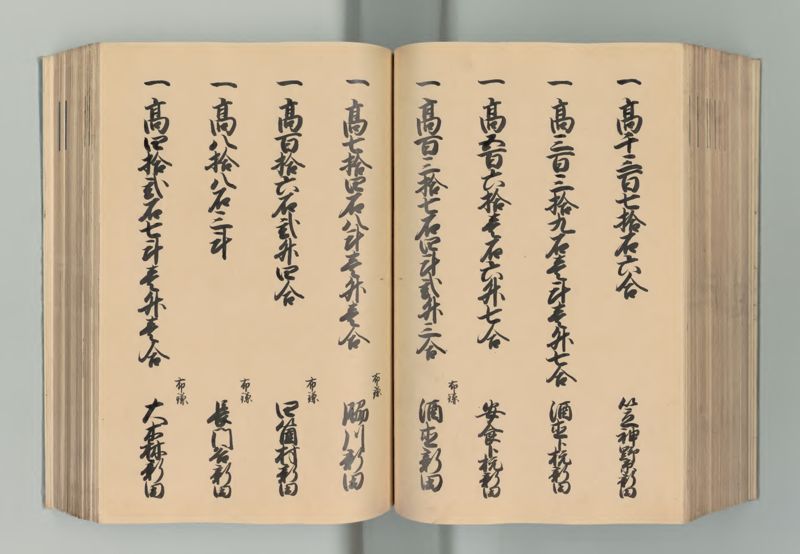 一 高千三百七拾石六合 笠神野新田
一 高三百三拾九石壱斗壱升七合 酒直卜杭新田
一 高五百六拾壱石六升七合 安食卜杭新田
一 高百三拾七石四斗弐升三合 酒直新田
布鎌
一 高七拾四石八斗壱升壱合 脇川新田
布鎌
一 高百拾六石弐升四合 四箇村新田
布鎌
一 高八拾八石三斗 長門谷新田
布鎌
一 高四拾弐石七斗壱升壱合 大森新田
布鎌